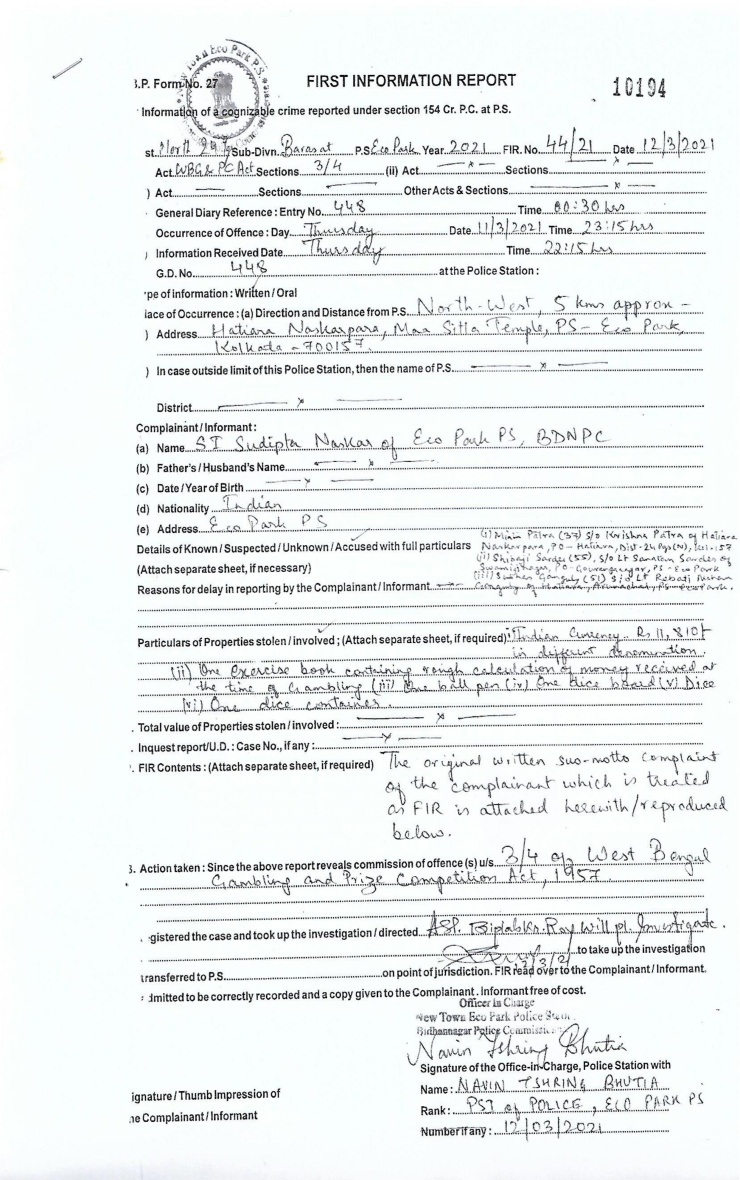 New Town Eco Park P.S.
.P. Form No. 27
FIRST INFORMATION REPORT
10194
Information of a cognizable crime reported under section 154 Cr. P.C. at P.S.
st. North 24 Sub-Divn. Barasat P.S Eco Park Year 2021 FIR. No. 44/21 Date 12/3/2021
Act WBG & PC Act Sections 3/4 (ii) Act — x — Sections — x —
) Act — Sections — Other Acts & Sections — x —
General Diary Reference : Entry No. 448 Time 00:30 hrs
Occurrence of Offence : Day Thursday Date 11/3/2021 Time 23:15 hrs
) Information Received Date Thursday Time 22:15 hrs
G.D. No. 448 at the Police Station :
'pe of information : Written / Oral
lace of Occurrence : (a) Direction and Distance from P.S. North-West, 5 kms approx -
) Address Hatiara Naskarpara, Maa Sitla Temple, PS - Eco Park,
Kolkata - 700157.
) In case outside limit of this Police Station, then the name of P.S. — x —
District — x —
Complainant / Informant :
(a) Name SI Sudipta Naskar of Eco Park PS, BDNPC
(b) Father's / Husband's Name — x —
(c) Date / Year of Birth — x —
(d) Nationality Indian
(e) Address Eco Park PS
Details of Known / Suspected / Unknown / Accused with full particulars
(Attach separate sheet, if necessary)
(i) Patra (37) S/o Krishna Patra of Hatiara
Naskarpara, PO - Hatiara, Dist - 24 Pgs (N), Kol-157
(ii) Shibaji Sardar (55), S/o Lt Sanatan Sardar of
PO - PS - Eco Park
(iii) Ganguly (51) S/o Lt Rebati
Ganguly of Hatiara, PS - Eco Park.
Reasons for delay in reporting by the Complainant / Informant
Particulars of Properties stolen / involved ; (Attach separate sheet, if required) Indian Currency Rs 11,810/-
in different denomination.
(ii) One exercise book containing rough calculation of money received at
the time of Gambling (iii) One ball pen (iv) One dice board (v) Dice
(vi) One dice container.
. Total value of Properties stolen / involved : — x —
. Inquest report/U.D. : Case No., if any : — x —
. FIR Contents : (Attach separate sheet, if required) The original written suo-motto complaint
of the complainant which is treated
as FIR is attached herewith/reproduced
below.
3. Action taken : Since the above report reveals commission of offence (s) u/s 3/4 of West Bengal
Gambling and Prize Competition Act, 1957
gistered the case and took up the investigation / directed ASI. Biplab Kr. Roy will pl. Investigate.
to take up the investigation
12/3/21
transferred to P.S. on point of jurisdiction. FIR read over to the Complainant / Informant.
dmitted to be correctly recorded and a copy given to the Complainant . Informant free of cost.
Officer in Charge
New Town Eco Park Police Station
Bidhannagar Police Commissi
Navin Tshring Bhutia
Signature of the Office-in-Charge, Police Station with
ignature / Thumb Impression of
Name : NAVIN TSHRING BHUTIA
ne Complainant / Informant
Rank : PSI of POLICE, ECO PARK PS
Number if any : 12/03/2021